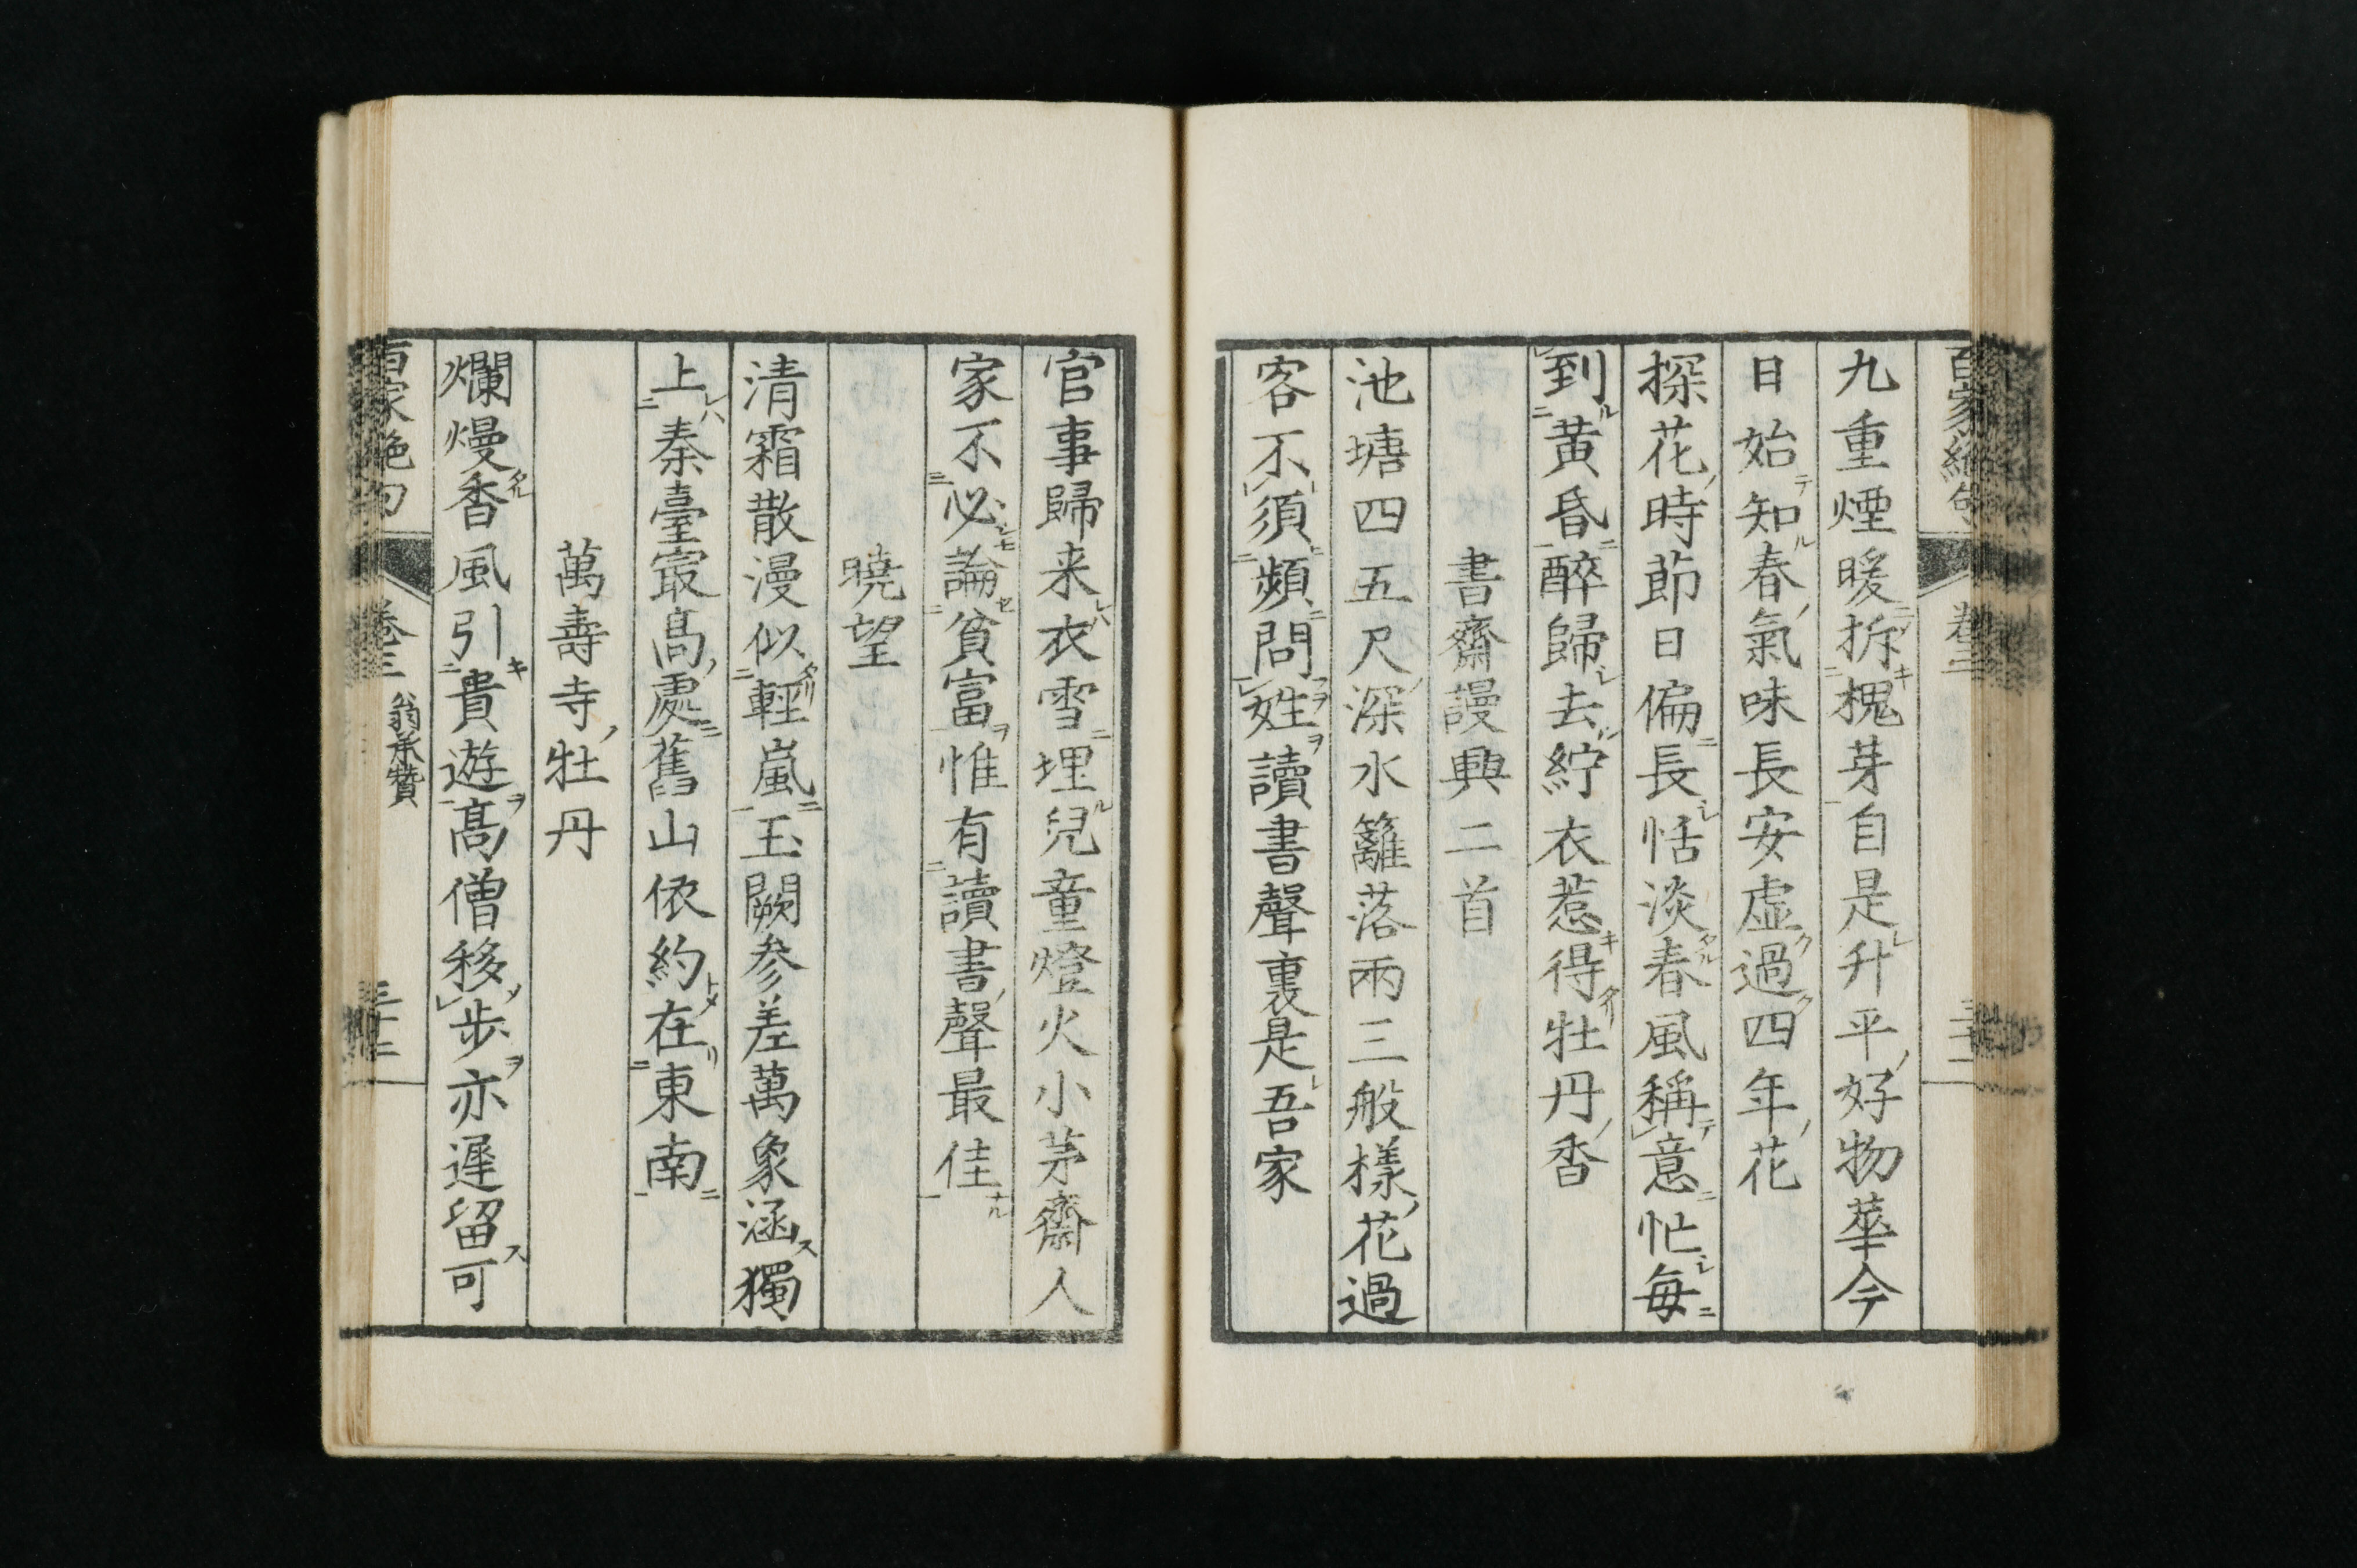 九重煙暖拆槐芽自是升平好物華今
日始知春氣味長安虚過四年花
探花時節日偏長恬淡春風稱意忙毎
到黄昏醉歸去紵衣惹得牡丹香
書齋謾興二首
池塘四五尺深水籬落兩三般様花過
客不須頻問姓讀書聲裏是吾家
官事歸来衣雪埋兒童燈火小茅齋人
家不必論貧富惟有讀書聲最佳
曉望
清霜散漫似輕嵐玉闕参差萬象涵獨
上秦臺寂髙處舊山依約在東南
萬壽寺牡丹
爛熳香風引貴遊髙僧移歩亦遲留可
百家絶句 卷三 翁承贊 三十二